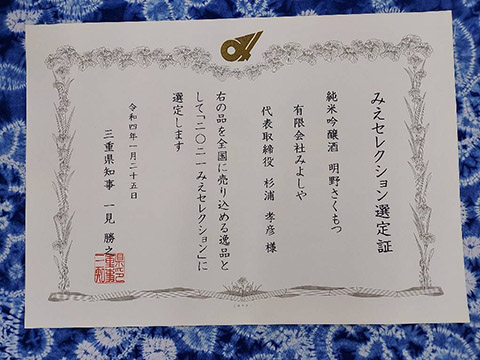 みえセレクション選定証
純米吟醸酒 明野さくもつ
有限会社みよしや
代表取締役 杉浦 孝彦 様
右の品を全国に売り込める逸品と
して「二〇二一みえセレクション」に
選定します
令和四年一月二十五日
三重県知事 一見 勝之